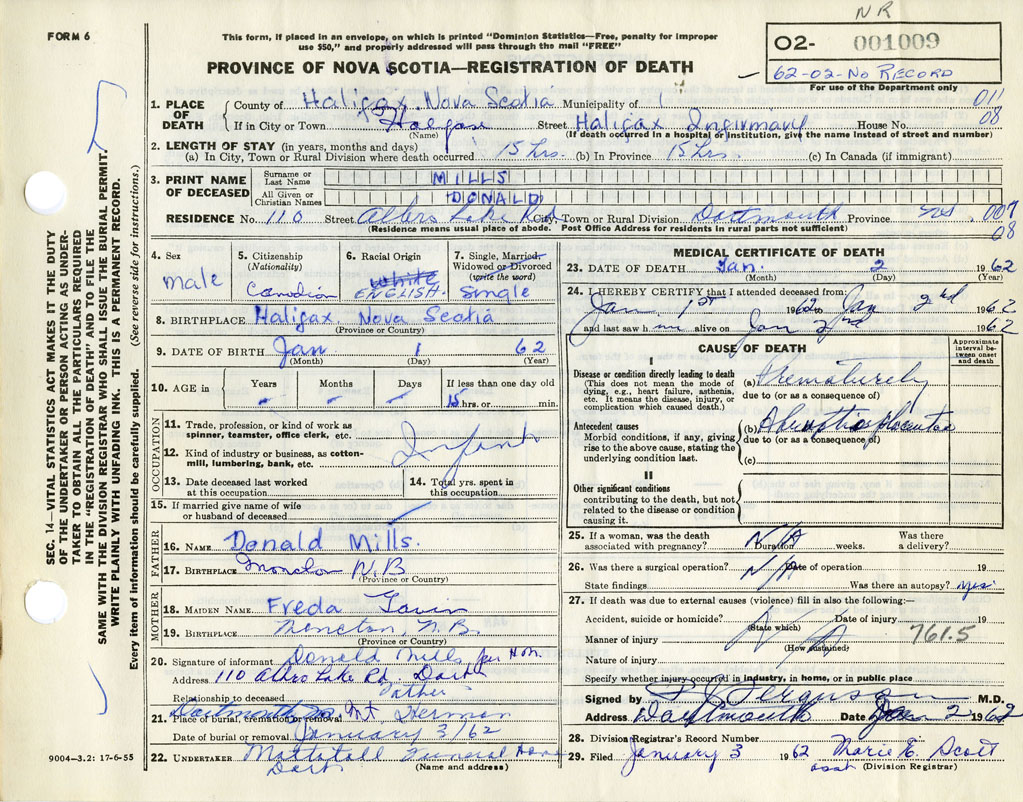 NR
FORM 6
This form, if placed in an envelope, on which is printed "Dominion Statistics—Free, penalty for improper
use $50," and properly addressed will pass through the mail "FREE"
PROVINCE OF NOVA SCOTIA—REGISTRATION OF DEATH
02- 001009
62-02-No RECORD
For use of the Department only
SEC. 14—VITAL STATISTICS ACT MAKES IT THE DUTY
OF THE UNDERTAKER OR PERSON ACTING AS UNDER-
TAKER TO OBTAIN ALL THE PARTICULARS REQUIRED
IN THE "REGISTRATION OF DEATH" AND TO FILE THE
SAME WITH THE DIVISION REGISTRAR WHO SHALL ISSUE THE BURIAL PERMIT.
WRITE PLAINLY WITH UNFADING INK. THIS IS A PERMANENT RECORD.
Every item of information should be carefully supplied. (See reverse side for instructions.)
1. PLACE OF DEATH County of Halifax Nova Scotia Municipality of 011
If in City or Town Halifax Street Halifax Infirmary House No. 08
(Name) (If death occurred in a hospital or institution, give the name instead of street and number)
2. LENGTH OF STAY (in years, months and days)
(a) In City, Town or Rural Division where death occurred 15 hrs. (b) In Province 15 hrs. (c) In Canada (if immigrant)
3. PRINT NAME OF DECEASED Surname or Last Name MILLS
All Given or Christian Names DONALD
RESIDENCE No. 110 Street Albro Lake Rd City, Town or Rural Division Dartmouth Province N.S. 007
(Residence means usual place of abode. Post Office Address for residents in rural parts not sufficient) 08
4. Sex male
5. Citizenship (Nationality) Canadian
6. Racial Origin White ENGLISH.
7. Single, Married, Widowed or Divorced (write the word) Single
8. BIRTHPLACE Halifax Nova Scotia
(Province or Country)
9. DATE OF BIRTH Jan 1 62
(Month) (Day) (Year)
10. AGE in Years - Months - Days - If less than one day old 15 hrs. or min.
OCCUPATION
11. Trade, profession, or kind of work as spinner, teamster, office clerk, etc. Infant
12. Kind of industry or business, as cotton-mill, lumbering, bank, etc.
13. Date deceased last worked at this occupation
14. Total yrs. spent in this occupation
15. If married give name of wife or husband of deceased
FATHER
16. NAME Donald Mills.
17. BIRTHPLACE Moncton N.B
(Province or Country)
MOTHER
18. MAIDEN NAME Freda Gavin
19. BIRTHPLACE Moncton, N.B.
(Province or Country)
20. Signature of informant Donald Mills per
Address 110 Albro Lake Rd. Dart
Relationship to deceased Father
21. Place of burial, cremation or removal Dartmouth Mt. Hermon
Date of burial or removal January 3/62
22. UNDERTAKER Mattatall Funeral Home
Dart. (Name and address)
9004-3.2: 17-6-55
MEDICAL CERTIFICATE OF DEATH
23. DATE OF DEATH Jan. 2 1962
(Month) (Day) (Year)
24. I HEREBY CERTIFY that I attended deceased from:
Jan 1st 1962 to Jan 2nd 1962
and last saw him alive on Jan 2nd 1962
CAUSE OF DEATH
Approximate interval between onset and death
I
Disease or condition directly leading to death
(This does not mean the mode of dying, e.g., heart failure, asthenia, etc. It means the disease, injury, or complication which caused death.)
(a) Prematurely
due to (or as a consequence of)
Antecedent causes
Morbid conditions, if any, giving rise to the above cause, stating the underlying condition last.
(b) Abruptio placentae
due to (or as a consequence of)
(c)
II
Other significant conditions
contributing to the death, but not related to the disease or condition causing it.
25. If a woman, was the death associated with pregnancy? N/A Duration weeks. Was there a delivery?
26. Was there a surgical operation? N/A Date of operation 19
State findings Was there an autopsy? yes
27. If death was due to external causes (violence) fill in also the following:—
Accident, suicide or homicide? Date of injury 19
(State which)
Manner of injury 761.5
(How sustained)
Nature of injury
Specify whether injury occurred in industry, in home, or in public place
Signed by Ferguson M.D.
Address Dartmouth Date Jan 2 1962
28. Division Registrar's Record Number
29. Filed January 3 1962 Marie E. Scott
asst (Division Registrar)